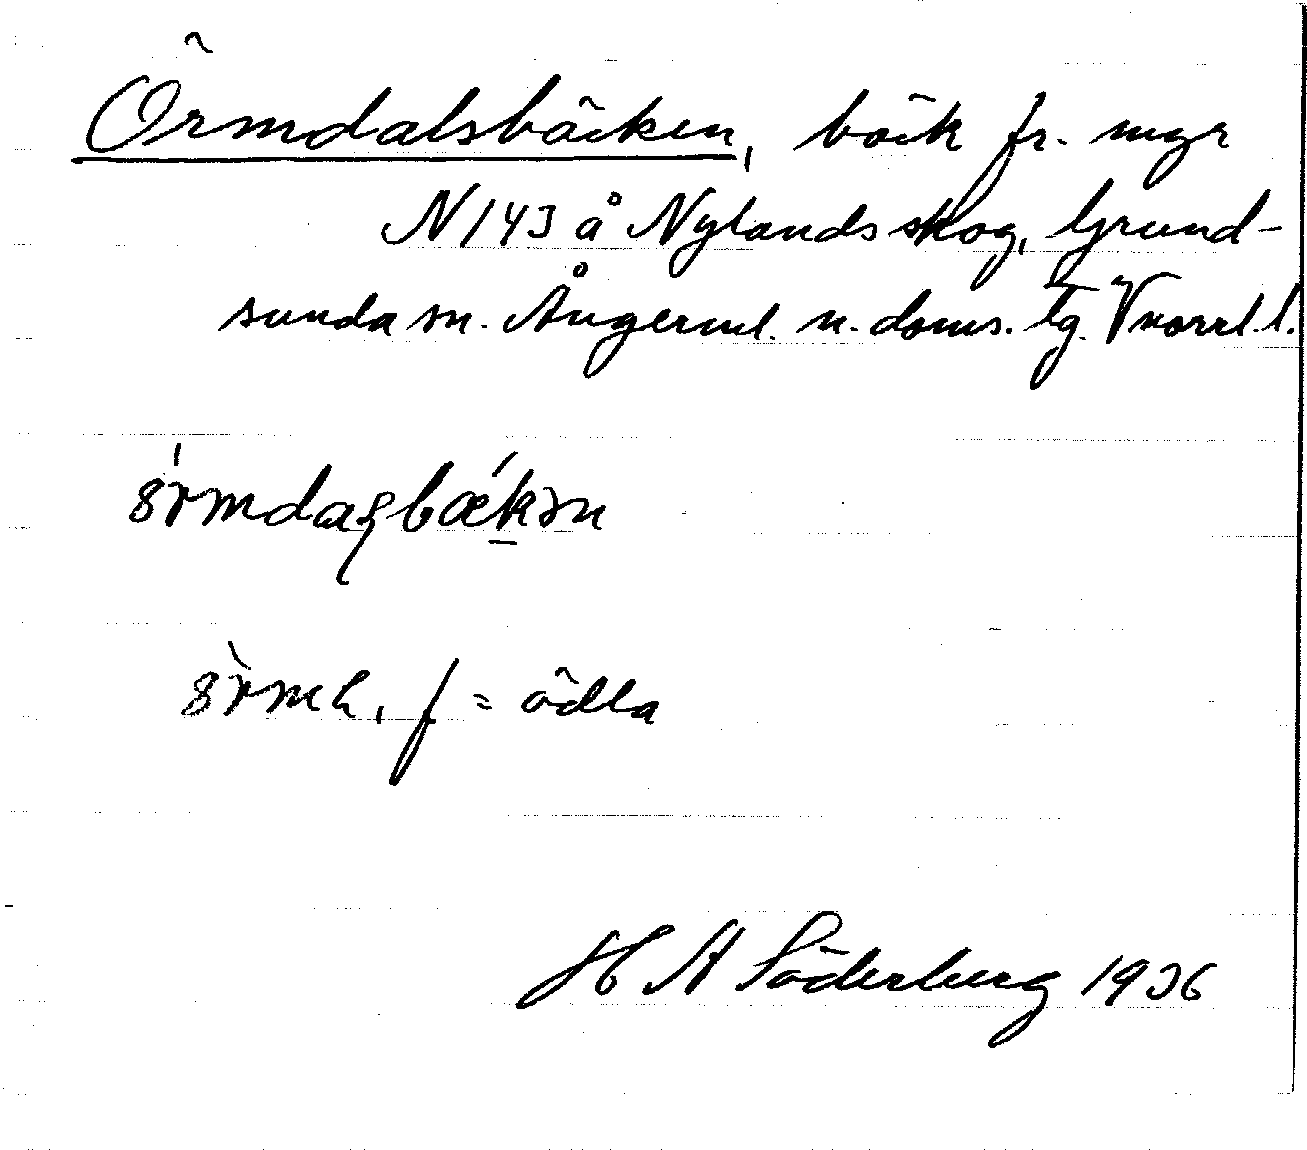 Örmdalsbäcken, bäck fr. myr
N 143 å Nylands skog, Grund-
sunda sn. Ångerml. n. doms. tg. Vnorrl. l.
ȣ́rmdaꞔbækən
ȣ̀rmɩ, f = ödla
H A Söderberg 1936